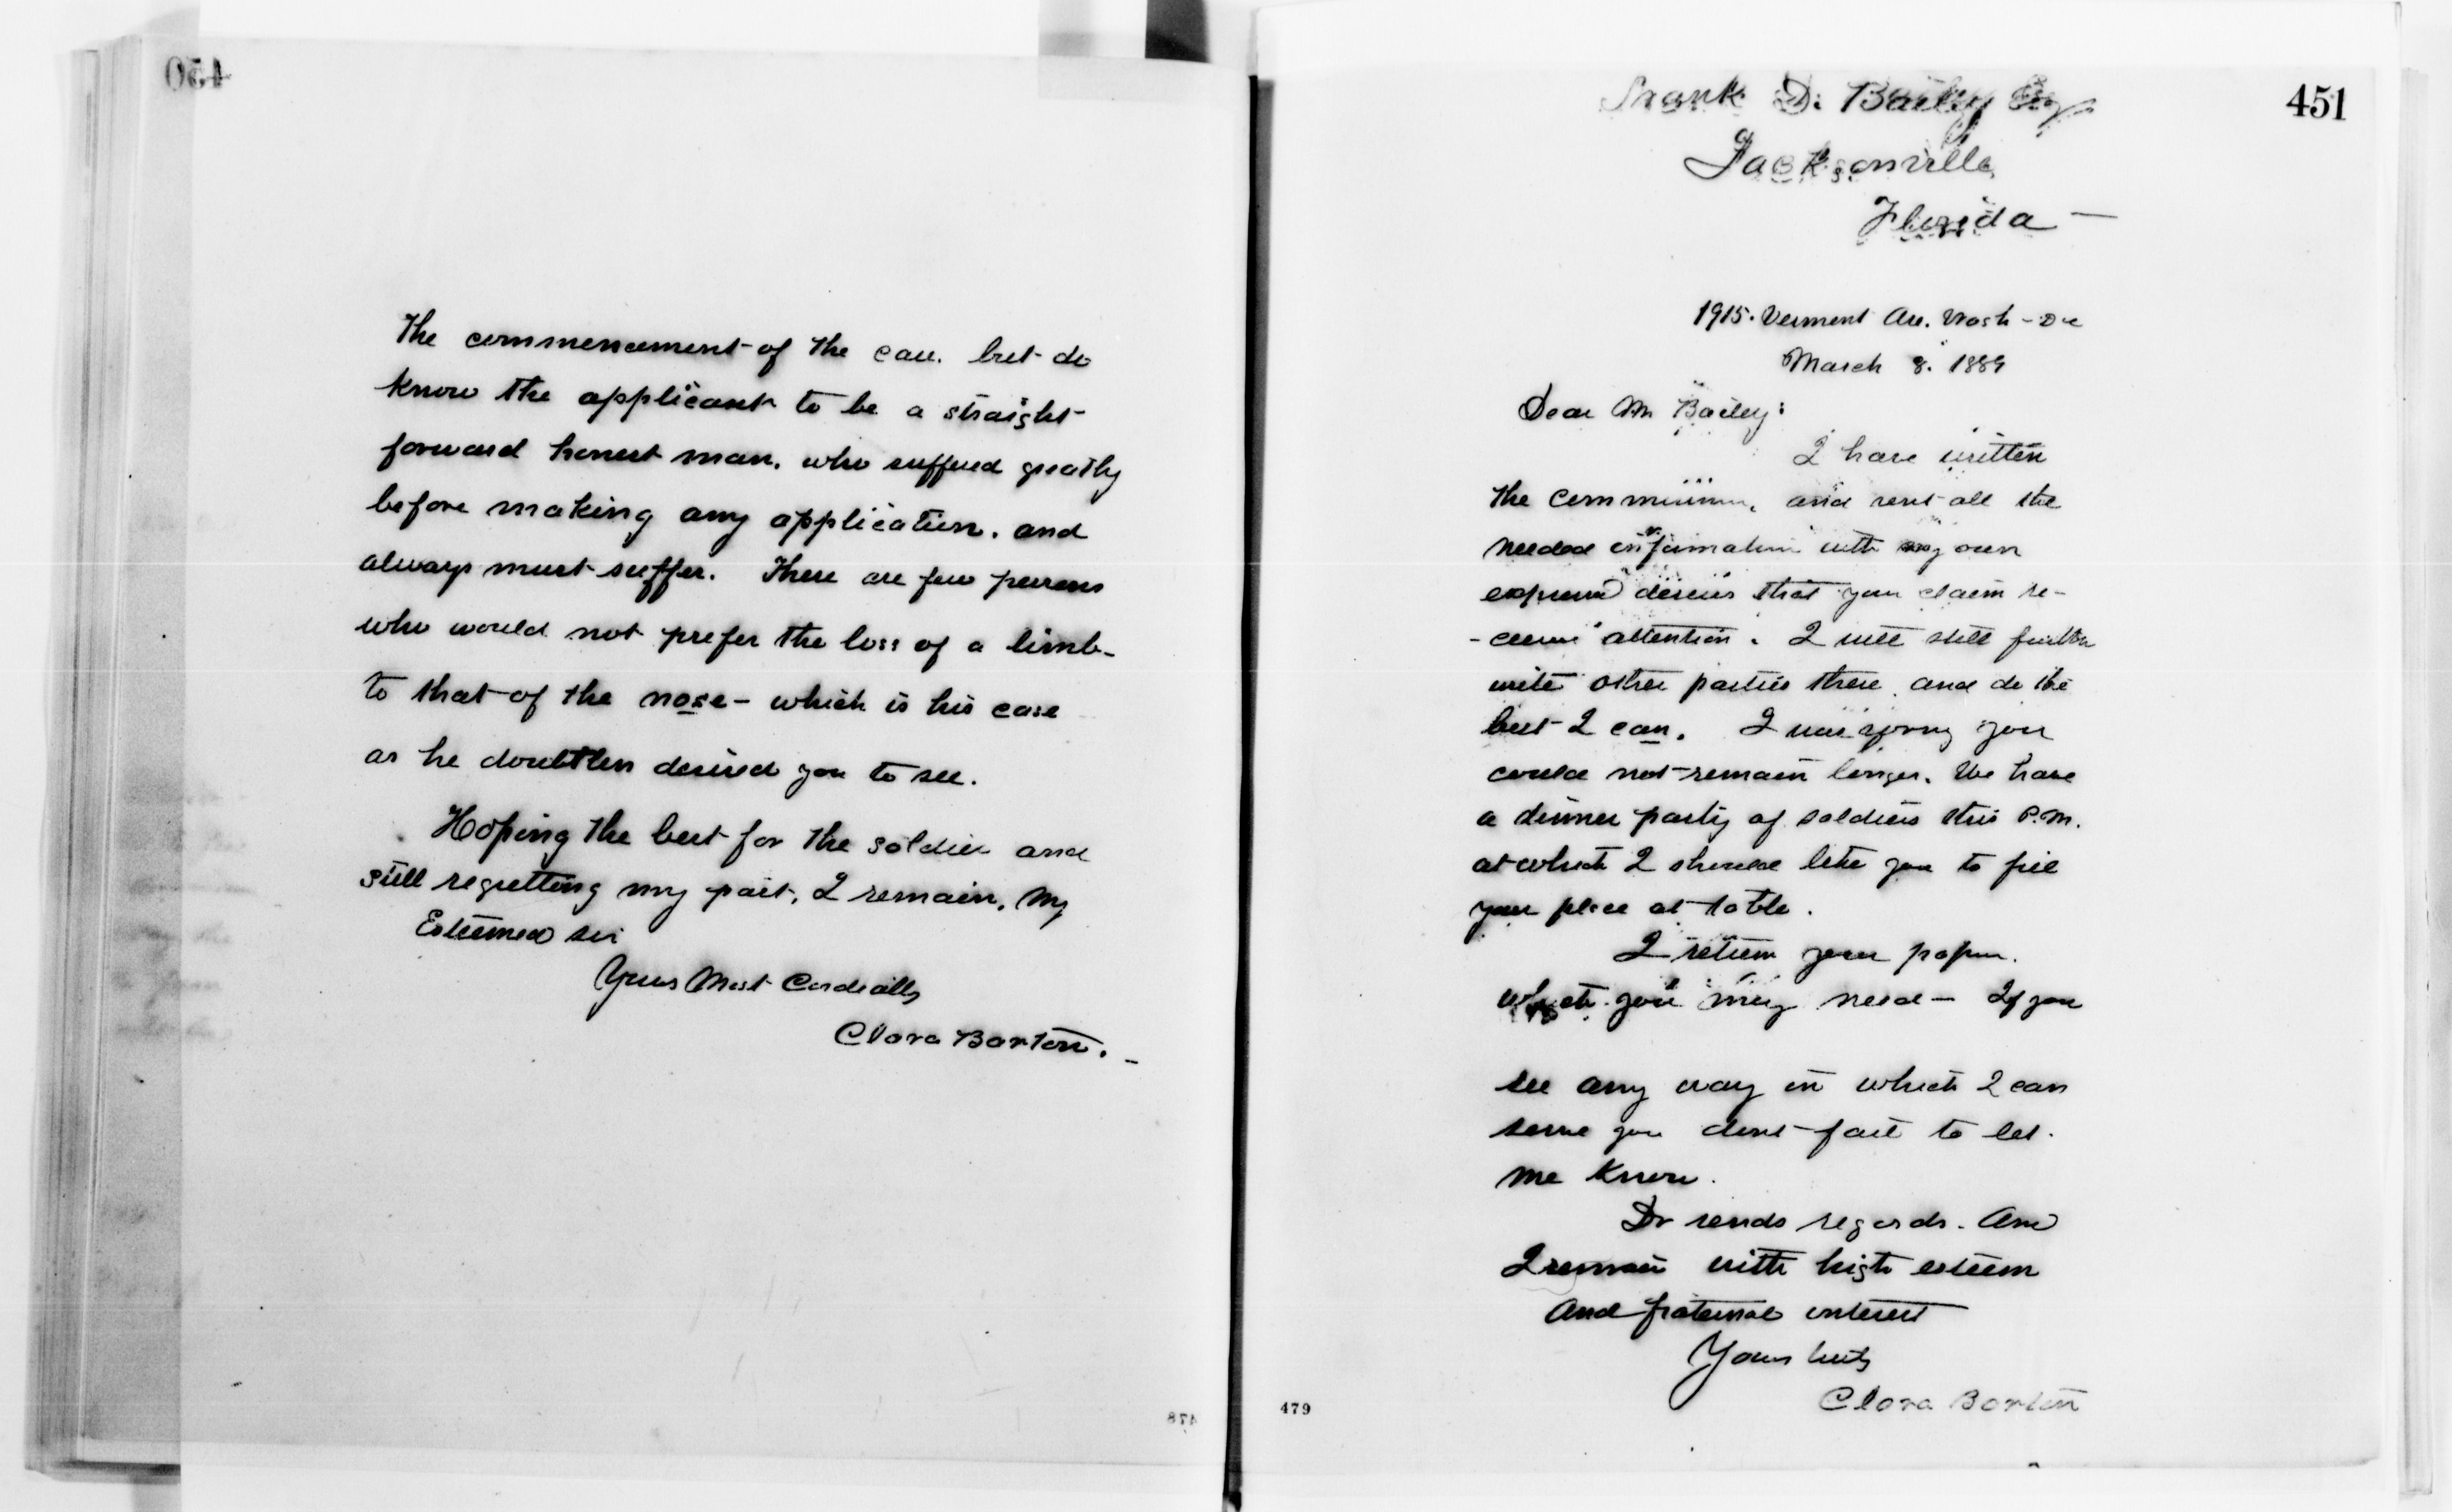 450
The commencement of the case. but do
know the applicant to be a straight
forward honest man, who suffered greatly
before making any application, and
always must suffer. There are few persons
who would not prefer the loss of a limb
to that of the nose – which is his case
as he doubtless desired you to see.
Hoping the best for the soldier and
still regretting my part, I remain, My
Esteemed sir
Yours Most Cordially
Clara Barton. –
478
451
Frank D. Bailey Esq
Jacksonville
Florida –
1915. Vermont Ave. Wash – DC
March 8. 1889
Dear Mr Bailey:
I have written
the commissioner, and sent all the
needed information with my own
expressed desires that your claim re-
-ceive attention. I will still further
write other parties there, and do the
best I can. I was sorry you
could not remain longer. We have
a dinner party of soldiers this P.M.
at which I should like you to fill
your place at table.
I return your papers.
which you may need – If you
see any way in which I can
serve you dont fail to let
me know.
Dr sends regards. And
I remain with high esteem
And fraternal interest
Yours truly
Clara Barton
479